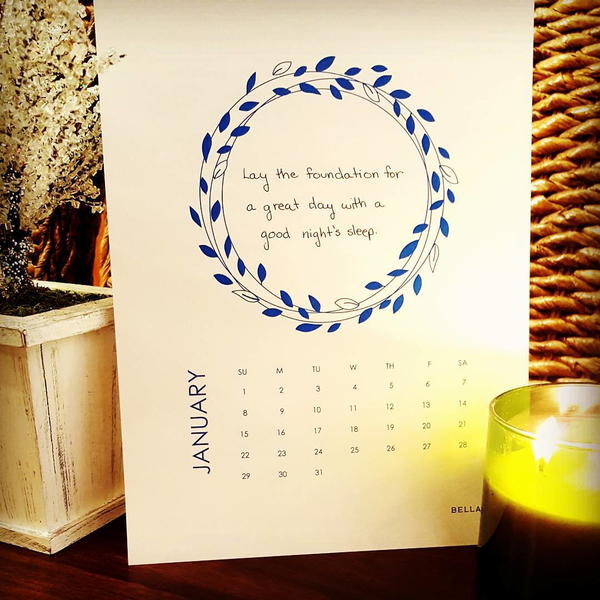 Lay the foundation for
a great day with a
good night's sleep.
JANUARY
SU M TU W TH F SA
1 2 3 4 5 6 7
8 9 10 11 12 13 14
15 16 17 18 19 20 21
22 23 24 25 26 27 28
29 30 31
BELLA